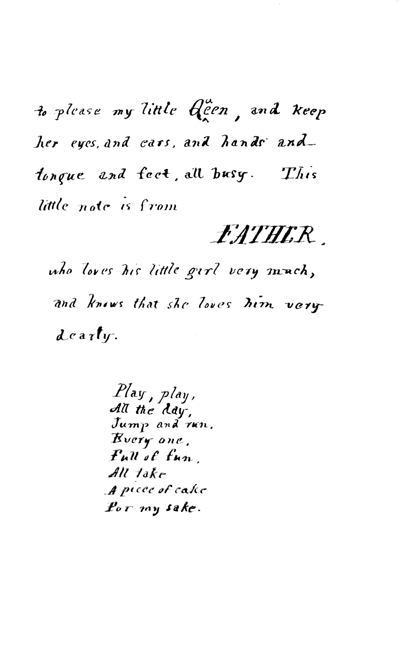 to please my little Qüeen, and keep
her eyes, and ears, and hands and
tongue and feet, all busy. This
little note is from
FATHER.
who loves his little girl very much,
and knows that she loves him very
dearly.
Play, play,
All the day,
Jump and run,
Every one,
Full of fun,
All take
A piece of cake
For my sake.